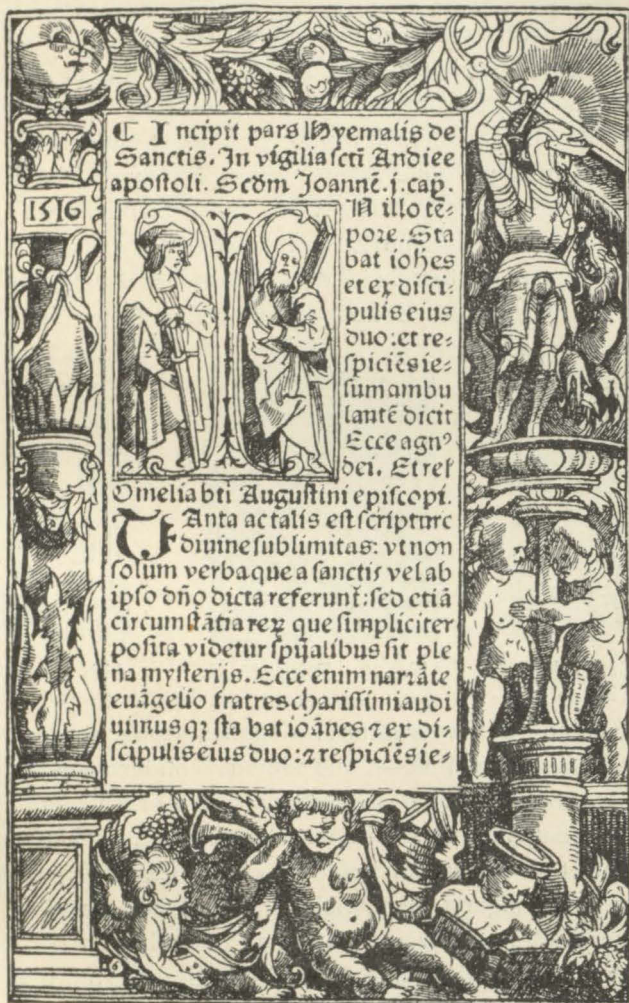 1516
¶ Incipit pars Hyemalis de
Sanctis. In vigilia sctī Andiee
apostoli. Scdm Joannē. j. cap̄.
IN illo tē-
pore. Sta
bat iohes
et ex disci-
pulis eius
duo: et re-
spiciēs ie-
sum ambu
lantē dicit
Ecce agnꝰ
dei. Et rel
Omelia bti Augustini episcopi.
TAnta ac talis est scripture
diuine sublimitas: vt non
solum verba que a sanctis vel ab
ipso dño dicta referunt̄: sed etiā
circumstātia reꝝ que simpliciter
posita videtur sp̄ualibus sit ple
na mysterijs. Ecce enim narrāte
euāgelio fratres charissimi audi
uimus qꝫ sta bat ioānes ⁊ ex di-
scipulis eius duo: ⁊ respiciēs ie-